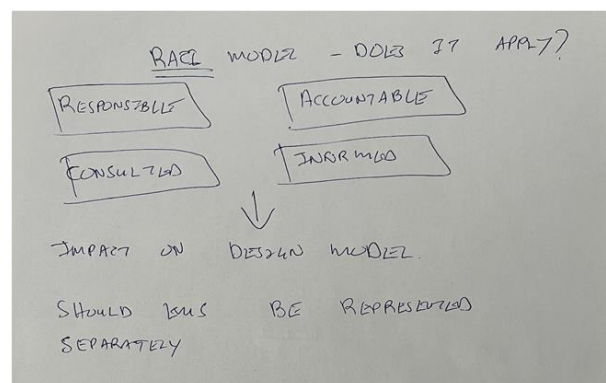 RACI MODEL - DOES IT APPLY?
RESPONSIBLE ACCOUNTABLE
CONSULTED INFORMED
IMPACT ON DESIGN MODEL.
SHOULD BE REPRESENTED
SEPARATELY